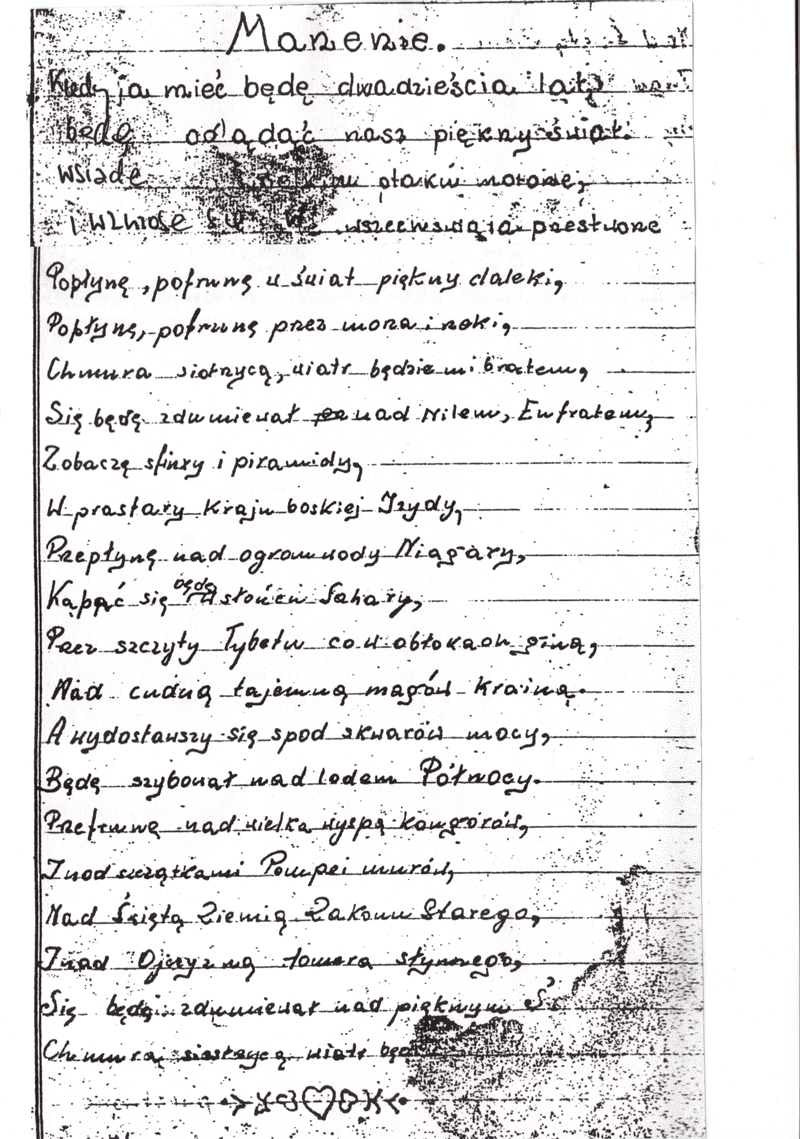 Marzenie.
Kiedy ja mieć będę dwadzieścia lat,
będę oglądać nasz piękny świat.
wsiądę ptaków motorze,
i wzniosę się przestworze
Popłynę, pofrunę w świat piękny daleki,
Popłynę, pofrunę przez morza i rzeki,
Chmura siotrzycą, wiatr będzie mi bratem,
Się będę zdumiewał nad Nilem, Eufratem,
Zobaczę sfinxy i piramidy,
W prastary kraju boskiej Izydy,
Przepłynę nad ogrom wody Niagary,
Kąpać się będę w słońcu Sahary,
Przez szczyty Tybetu co w obłokach giną,
Nad cudną tajemną magów krainą.
A wydostawszy się spod skwarów mocy,
Będę szybował nad lodem Północy.
Przefrunę nad wielką wyspą kangurów,
I nad szczątkami Pompei murów,
Nad Świętą Ziemią Zakonu Starego,
I nad Ojczyzną Homera słynnego,
Się będę zdumiewał nad pięknym
Chmura siostrzycą wiatr